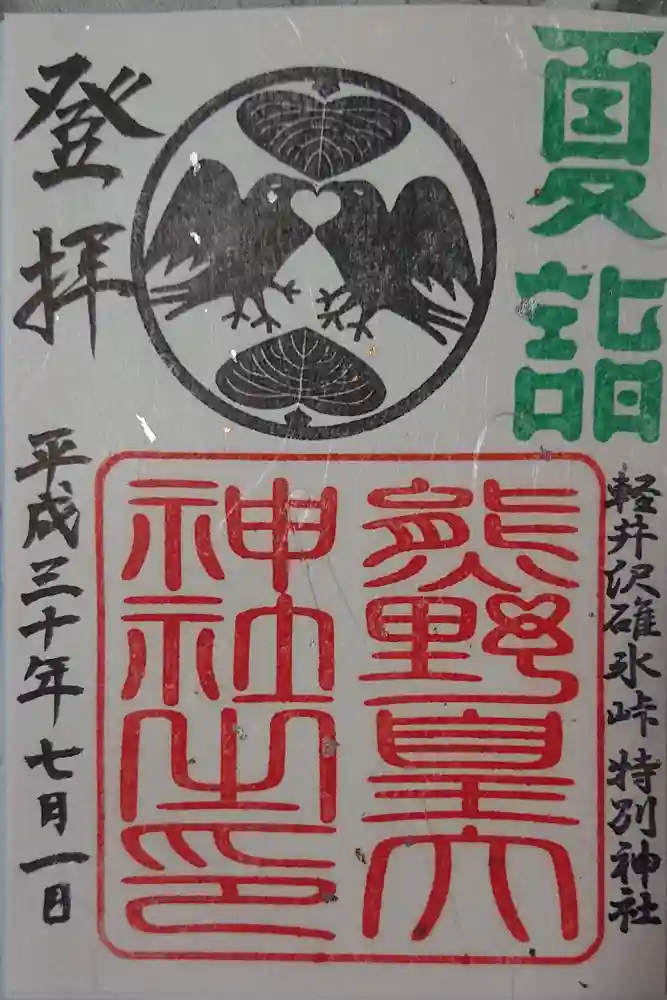 夏詣
軽井沢碓氷峠 特別神社
熊野皇大
神社之印
登拝
平成三十年 七月一日